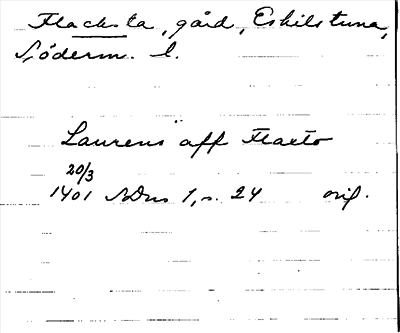 Flacksta, gård, Eskilstuna,
Söderm. l.
Laurens aff Flaeto
20/3
1401 SDns 1, s. 24 orig.